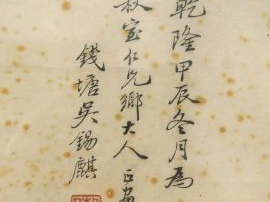 乾隆甲辰冬月為
叔宝仁兄鄉大人正書
錢塘吳錫麒